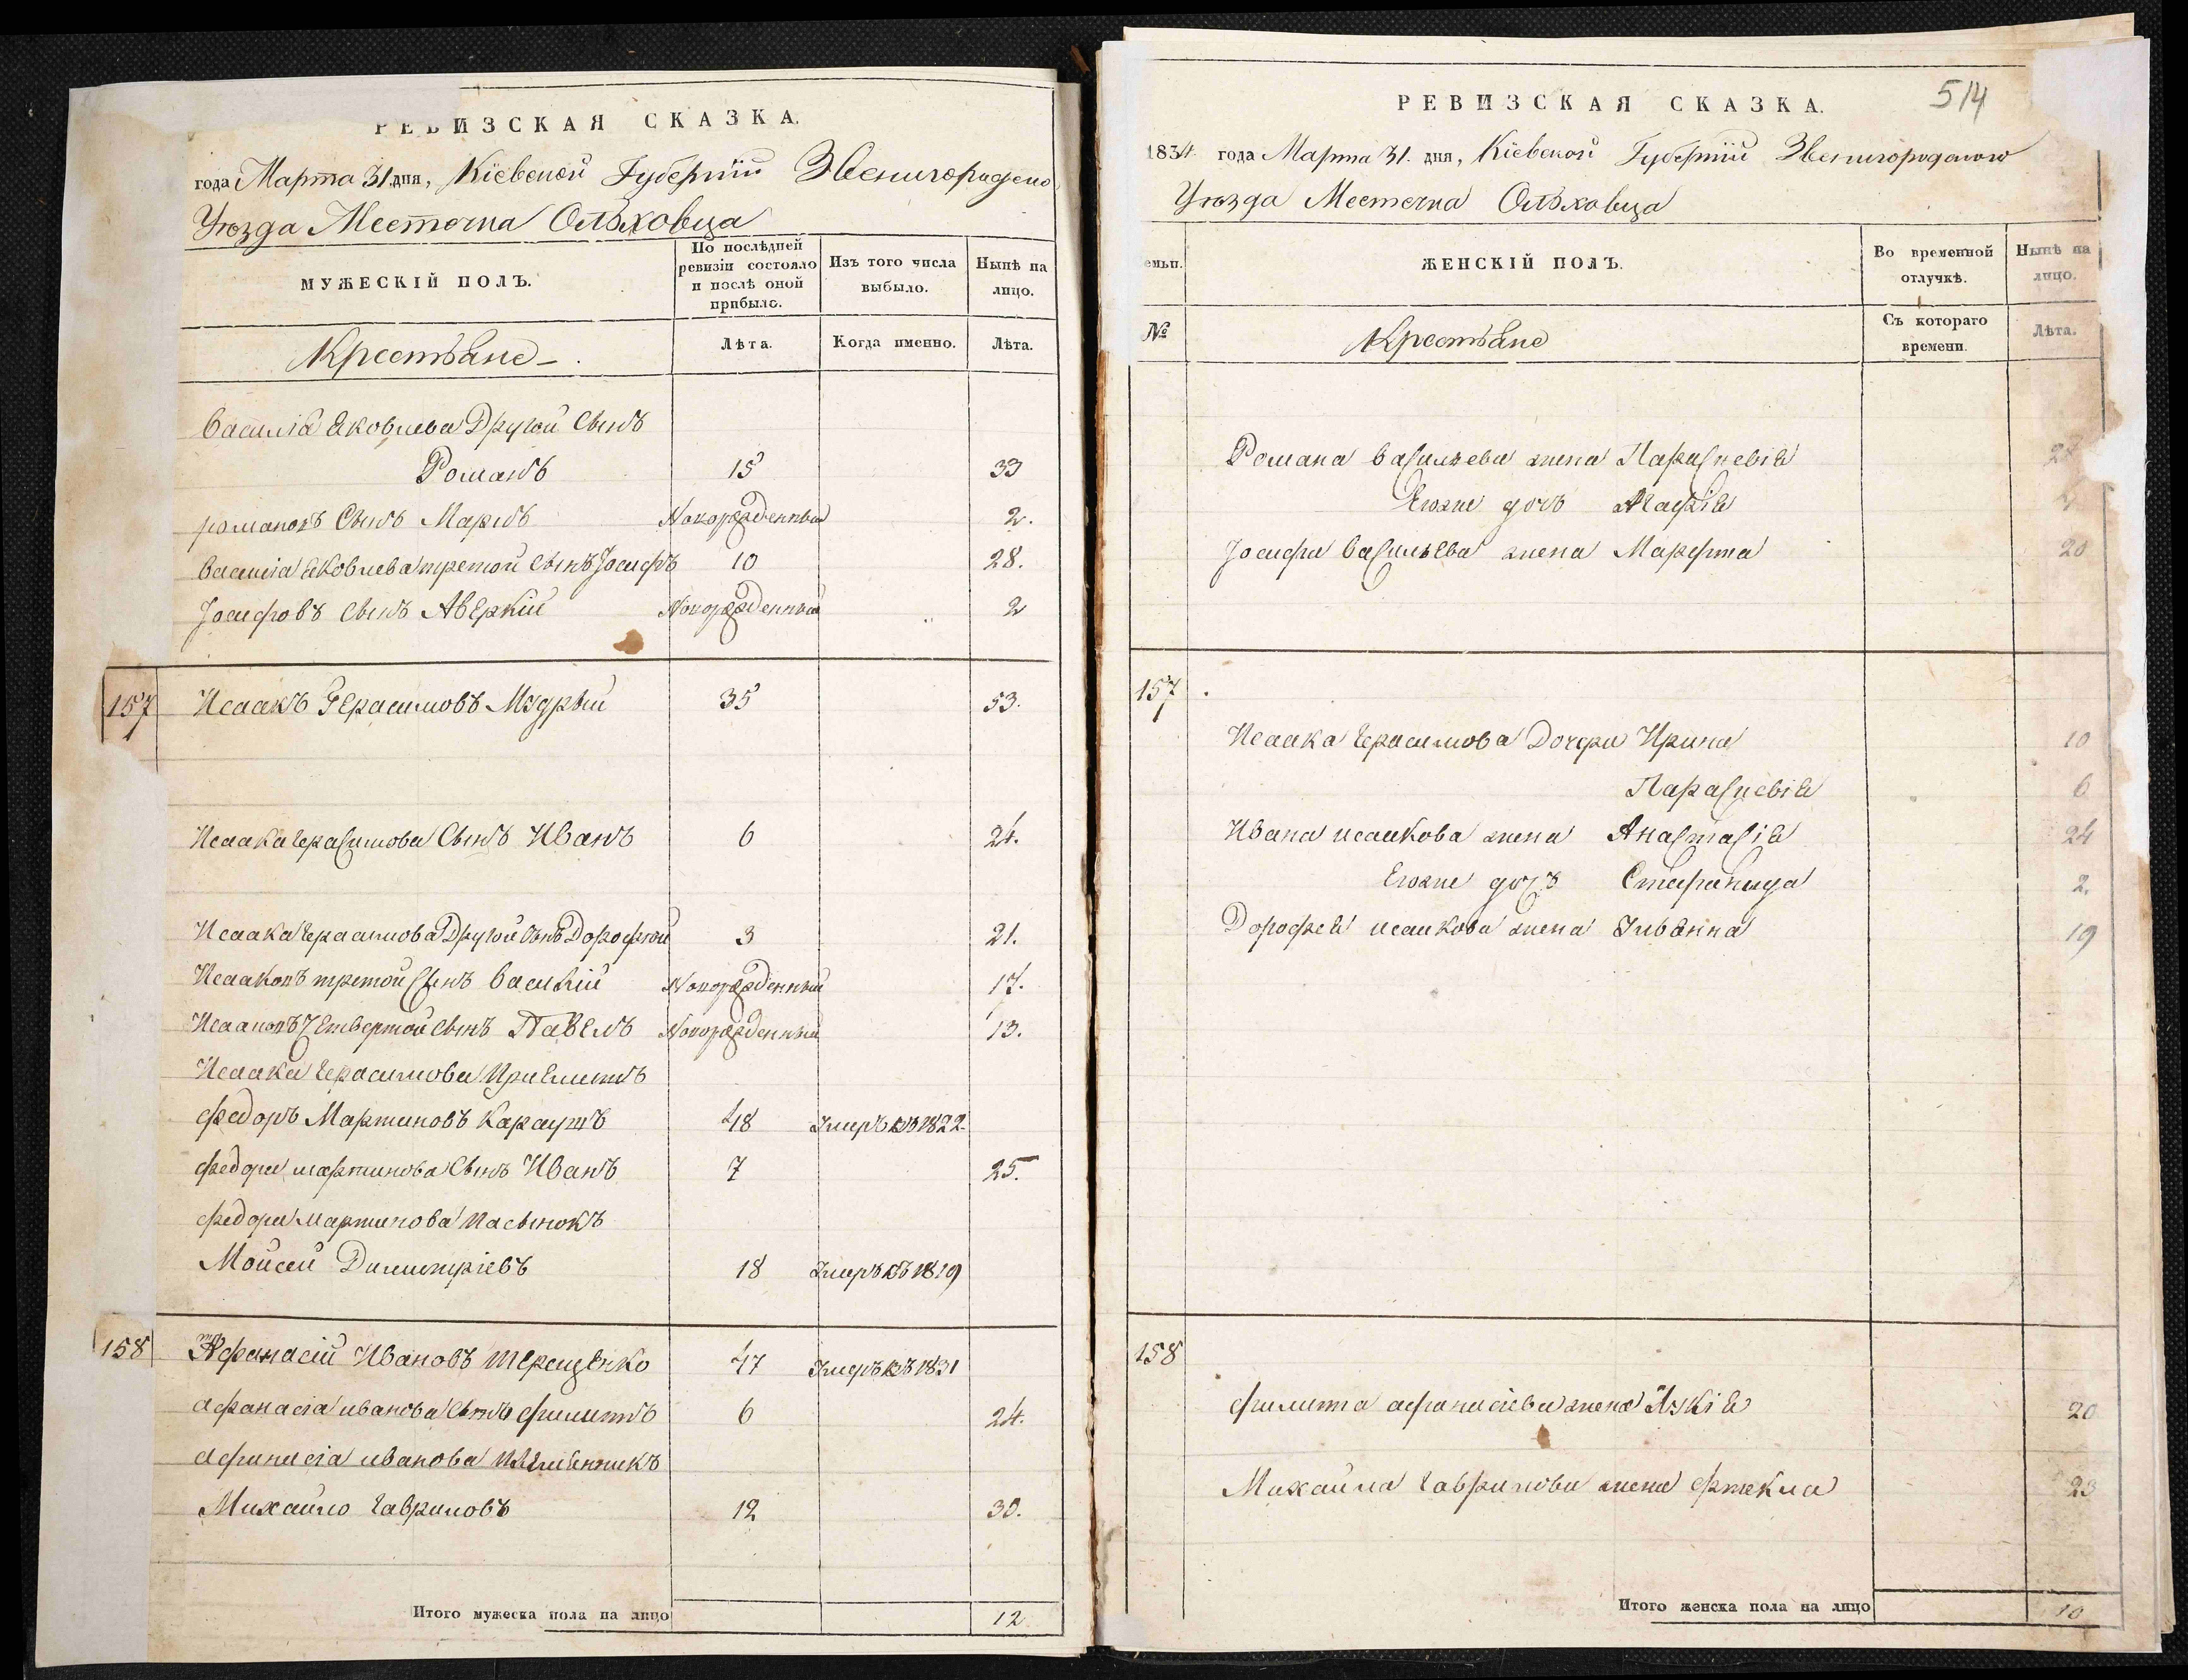 РЕВИЗСКАЯ СКАЗКА.
года Марта 31 дня, Кіевской Губерніи Звенигородско
Уѣзда Местечка Ольховца
МУЖЕСКІЙ ПОЛЪ.
По послѣдней ревизіи состояло и послѣ оной прибыло.
Изъ того числа выбыло.
Нынѣ на лицо.
Крестьяне
Лѣта.
Когда именно.
Лѣта.
Василія Яковлева Другой Сынъ
Романъ 15 33
романовъ Сынъ Маркъ Новорожденный 2.
Василія Яковлева третой Сынъ Іосифъ 10 28.
Іосифовъ Сынъ Аверкій Новорожденный 2
157 Исаакъ Герасимовъ Мудрый 35 53.
Исаака Герасимова Сынъ Иванъ 6 24.
Исаака Герасимова Другой Сынъ Дорофѣй 3 21.
Исааковъ третой Сынъ Василій Новорожденный 17.
Исааковъ Четвертой Сынъ Павелъ Новорожденный 13.
Исаака Герасимова Приемышъ
Федоръ Мартиновъ 48 Умеръ въ 1822
Федора Мартинова Сынъ Иванъ 7 25.
Федора Мартинова Пасынокъ
Мойсей Димитріевъ 18 Умеръ въ 1819
158 Афанасій Ивановъ Терещенко 47 Умеръ въ 1831
Афанасія иванова Сынъ Филиппъ 6 24.
Афанасія иванова Племенникъ
Михайло Гавриловъ 12 30.
Итого мужеска пола на лицо 12
514
РЕВИЗСКАЯ СКАЗКА.
1834 года Марта 31. дня, Кіевской Губерніи Звенигородского
Уѣзда Местечка Ольховца
емьи.
ЖЕНСКІЙ ПОЛЪ.
Во временной отлучкѣ.
Нынѣ на лицо.
№
Крестьяне
Съ котораго времени.
Лѣта.
Романа Васильева жена Параскевія
Егоже дочь Агафія
Іосифа Васильева жена Марфта 20
157
Исаака Герасимова Дочери Ирина 10
Параскевія 6
Ивана исаакова жена Анастасія 24
Егоже дочь Стефанида 2.
Дорофея исаакова жена Ульянна 19
158
Филиппа афанасіева жена 20
Михайла Гаврилова жена Фтекла 23
Итого женска пола на лицо 10